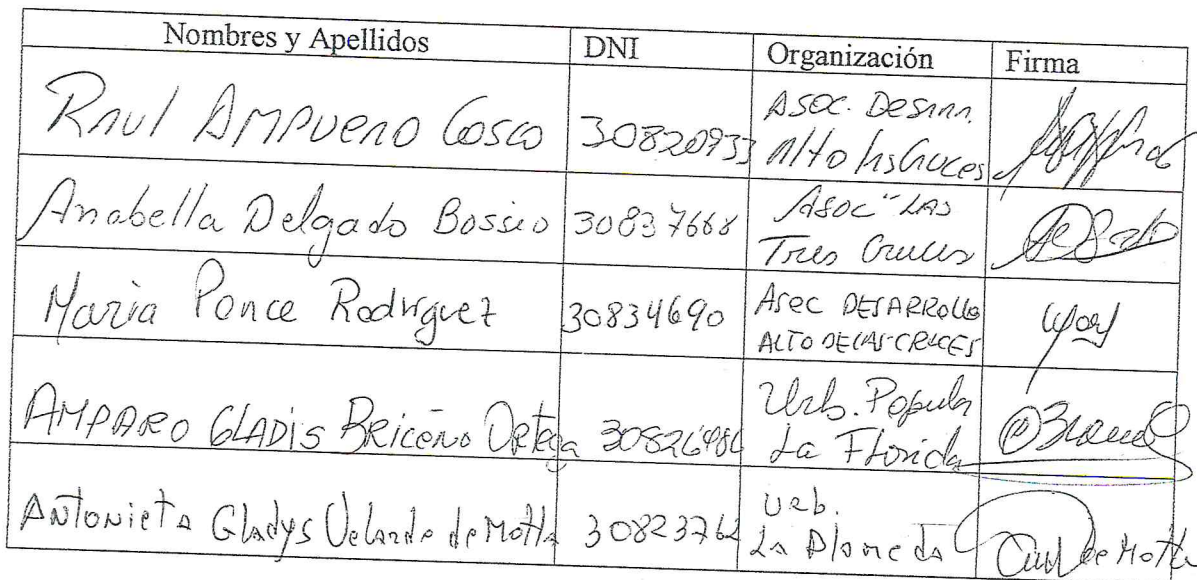 Nombres y Apellidos DNI Organización Firma
Raul Ampuero Cosco 30820933 Asoc. Desarr.
Alto las Cruces
Anabella Delgado Bossio 30837668 Asoc "Las
Tres Cruces
Maria Ponce Rodriguez 30834690 Asoc DESARROLLO
ALTO DE LAS CRUCES
AMPARO GLADIS BRICEÑO Ortega 30826486 Urb. Popular
La Florida
Antonieta Gladys Velarde de Motta 30823762 Urb.
La Alameda de Motta